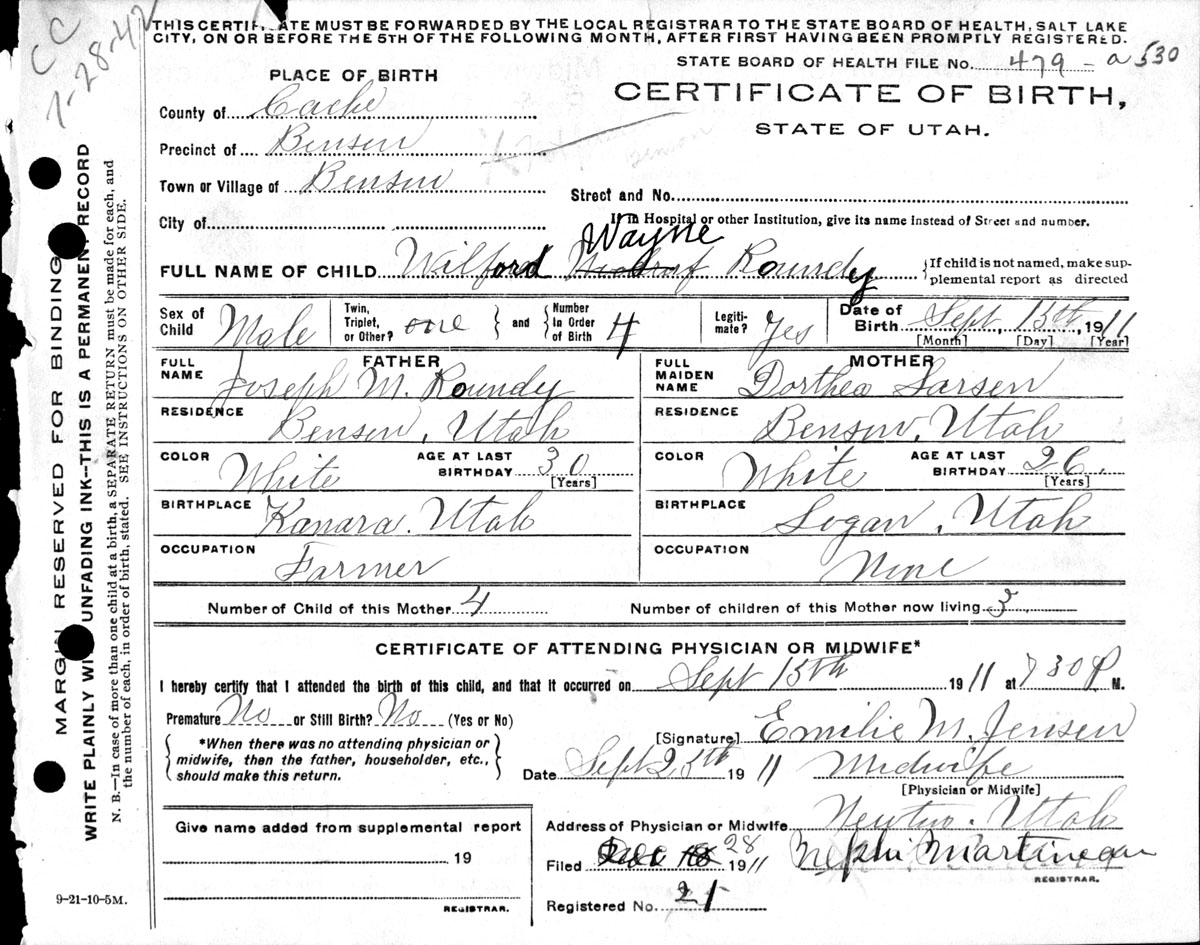 CC
7-28-42
THIS CERTIFICATE MUST BE FORWARDED BY THE LOCAL REGISTRAR TO THE STATE BOARD OF HEALTH, SALT LAKE
CITY, ON OR BEFORE THE 5TH OF THE FOLLOWING MONTH, AFTER FIRST HAVING BEEN PROMPTLY REGISTERED.
STATE BOARD OF HEALTH FILE No. 479 - a 530
PLACE OF BIRTH
CERTIFICATE OF BIRTH,
STATE OF UTAH.
County of Cache
Precinct of Benson
Benson
Town or Village of Benson
Street and No.
City of
If in Hospital or other Institution, give its name instead of Street and number.
Wayne
FULL NAME OF CHILD Wilford Roundy
{If child is not named, make sup-
plemental report as directed
Sex of Child Male
Twin, Triplet, or Other? one } and { Number In Order of Birth 4
Legiti-mate? Yes
Date of Birth Sept, 15th, 1911
[Month] [Day] [Year]
FATHER
FULL NAME Joseph M. Roundy
RESIDENCE Benson, Utah
COLOR White AGE AT LAST BIRTHDAY 30 [Years]
BIRTHPLACE Kanara. Utah
OCCUPATION Farmer
MOTHER
FULL MAIDEN NAME Dorthea Larsen
RESIDENCE Benson, Utah
COLOR White AGE AT LAST BIRTHDAY 26. [Years]
BIRTHPLACE Logan, Utah
OCCUPATION None
Number of Child of this Mother 4 Number of children of this Mother now living 3
CERTIFICATE OF ATTENDING PHYSICIAN OR MIDWIFE*
I hereby certify that I attended the birth of this child, and that it occurred on Sept 15th 1911 at 730 P M.
Premature No or Still Birth? No (Yes or No)
{ *When there was no attending physician or
midwife, then the father, householder, etc.,
should make this return. }
[Signature] Emilie M. Jensen
Date Sept 25th 1911 Midwife
[Physician or Midwife]
Address of Physician or Midwife Newton. Utah
Give name added from supplemental report
19
REGISTRAR.
Filed 28 1911 Nephi
REGISTRAR.
Registered No. 21
9-21-10-5M.
MARGIN RESERVED FOR BINDING
WRITE PLAINLY WITH UNFADING INK--THIS IS A PERMANENT RECORD
N. B.--In case of more than one child at a birth, a SEPARATE RETURN must be made for each, and
the number of each, in order of birth, stated. SEE INSTRUCTIONS ON OTHER SIDE.